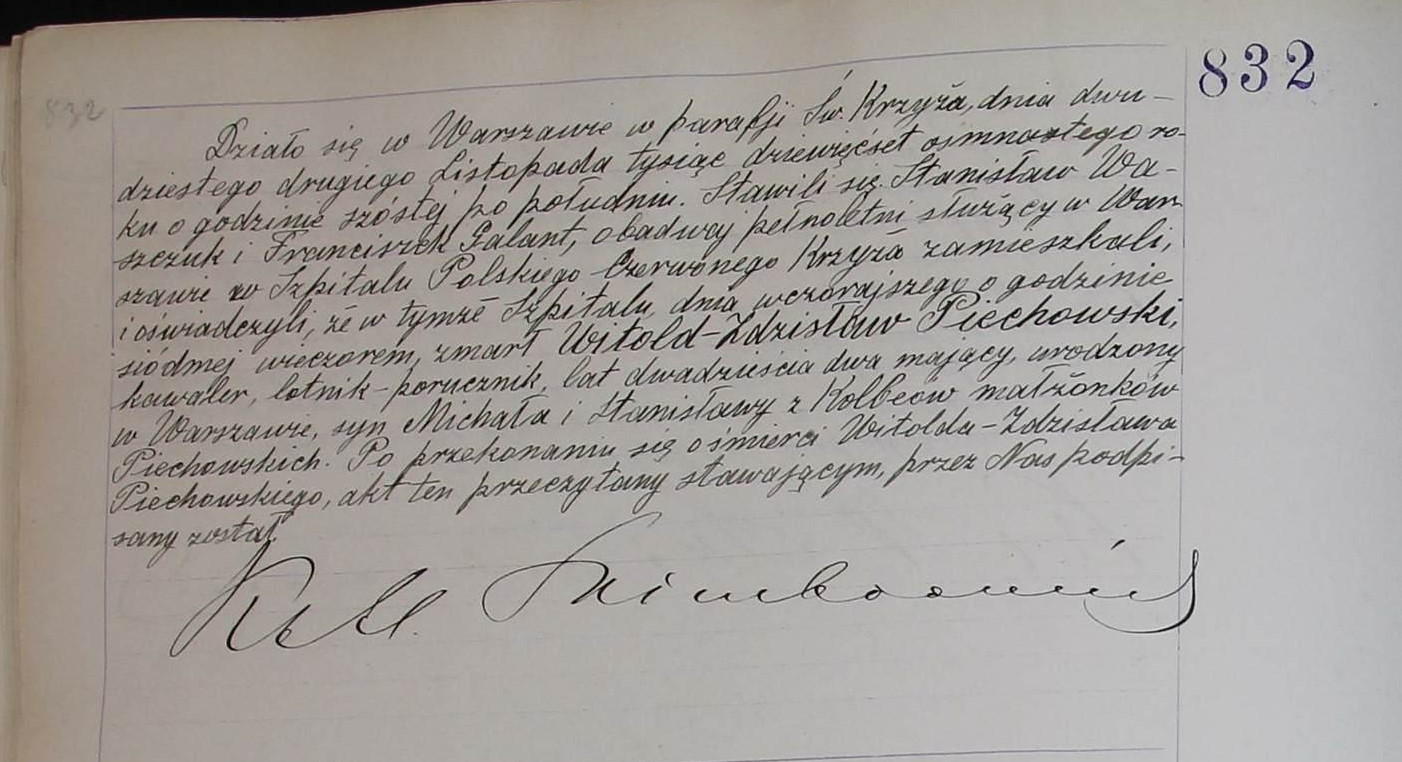 832
832
Działo się w Warszawie w parafji Św. Krzyża, dnia dwu-
dziestego drugiego Listopada tysiąc dziewięćset osmnastego ro-
ku o godzinie szóstej po południu. Stawili się Stanisław Wa-
szczuk i Franciszek Galant, obadwaj pełnoletni służący w War-
szawie w Szpitalu Polskiego Czerwonego Krzyża zamieszkali,
i oświadczyli, że w tymże Szpitalu, dnia wczorajszego o godzinie
siódmej wieczorem, zmarł Witold-Zdzisław Piechowski,
kawaler, lotnik-porucznik, lat dwadzieścia dwa mający, urodzony
w Warszawie, syn Michała i Stanisławy z Kolbeów małżonków
Piechowskich. Po przekonaniu się o śmierci Witolda-Zdzisława
Piechowskiego, akt ten przeczytany stawającym, przez Nas podpi-
sany został.